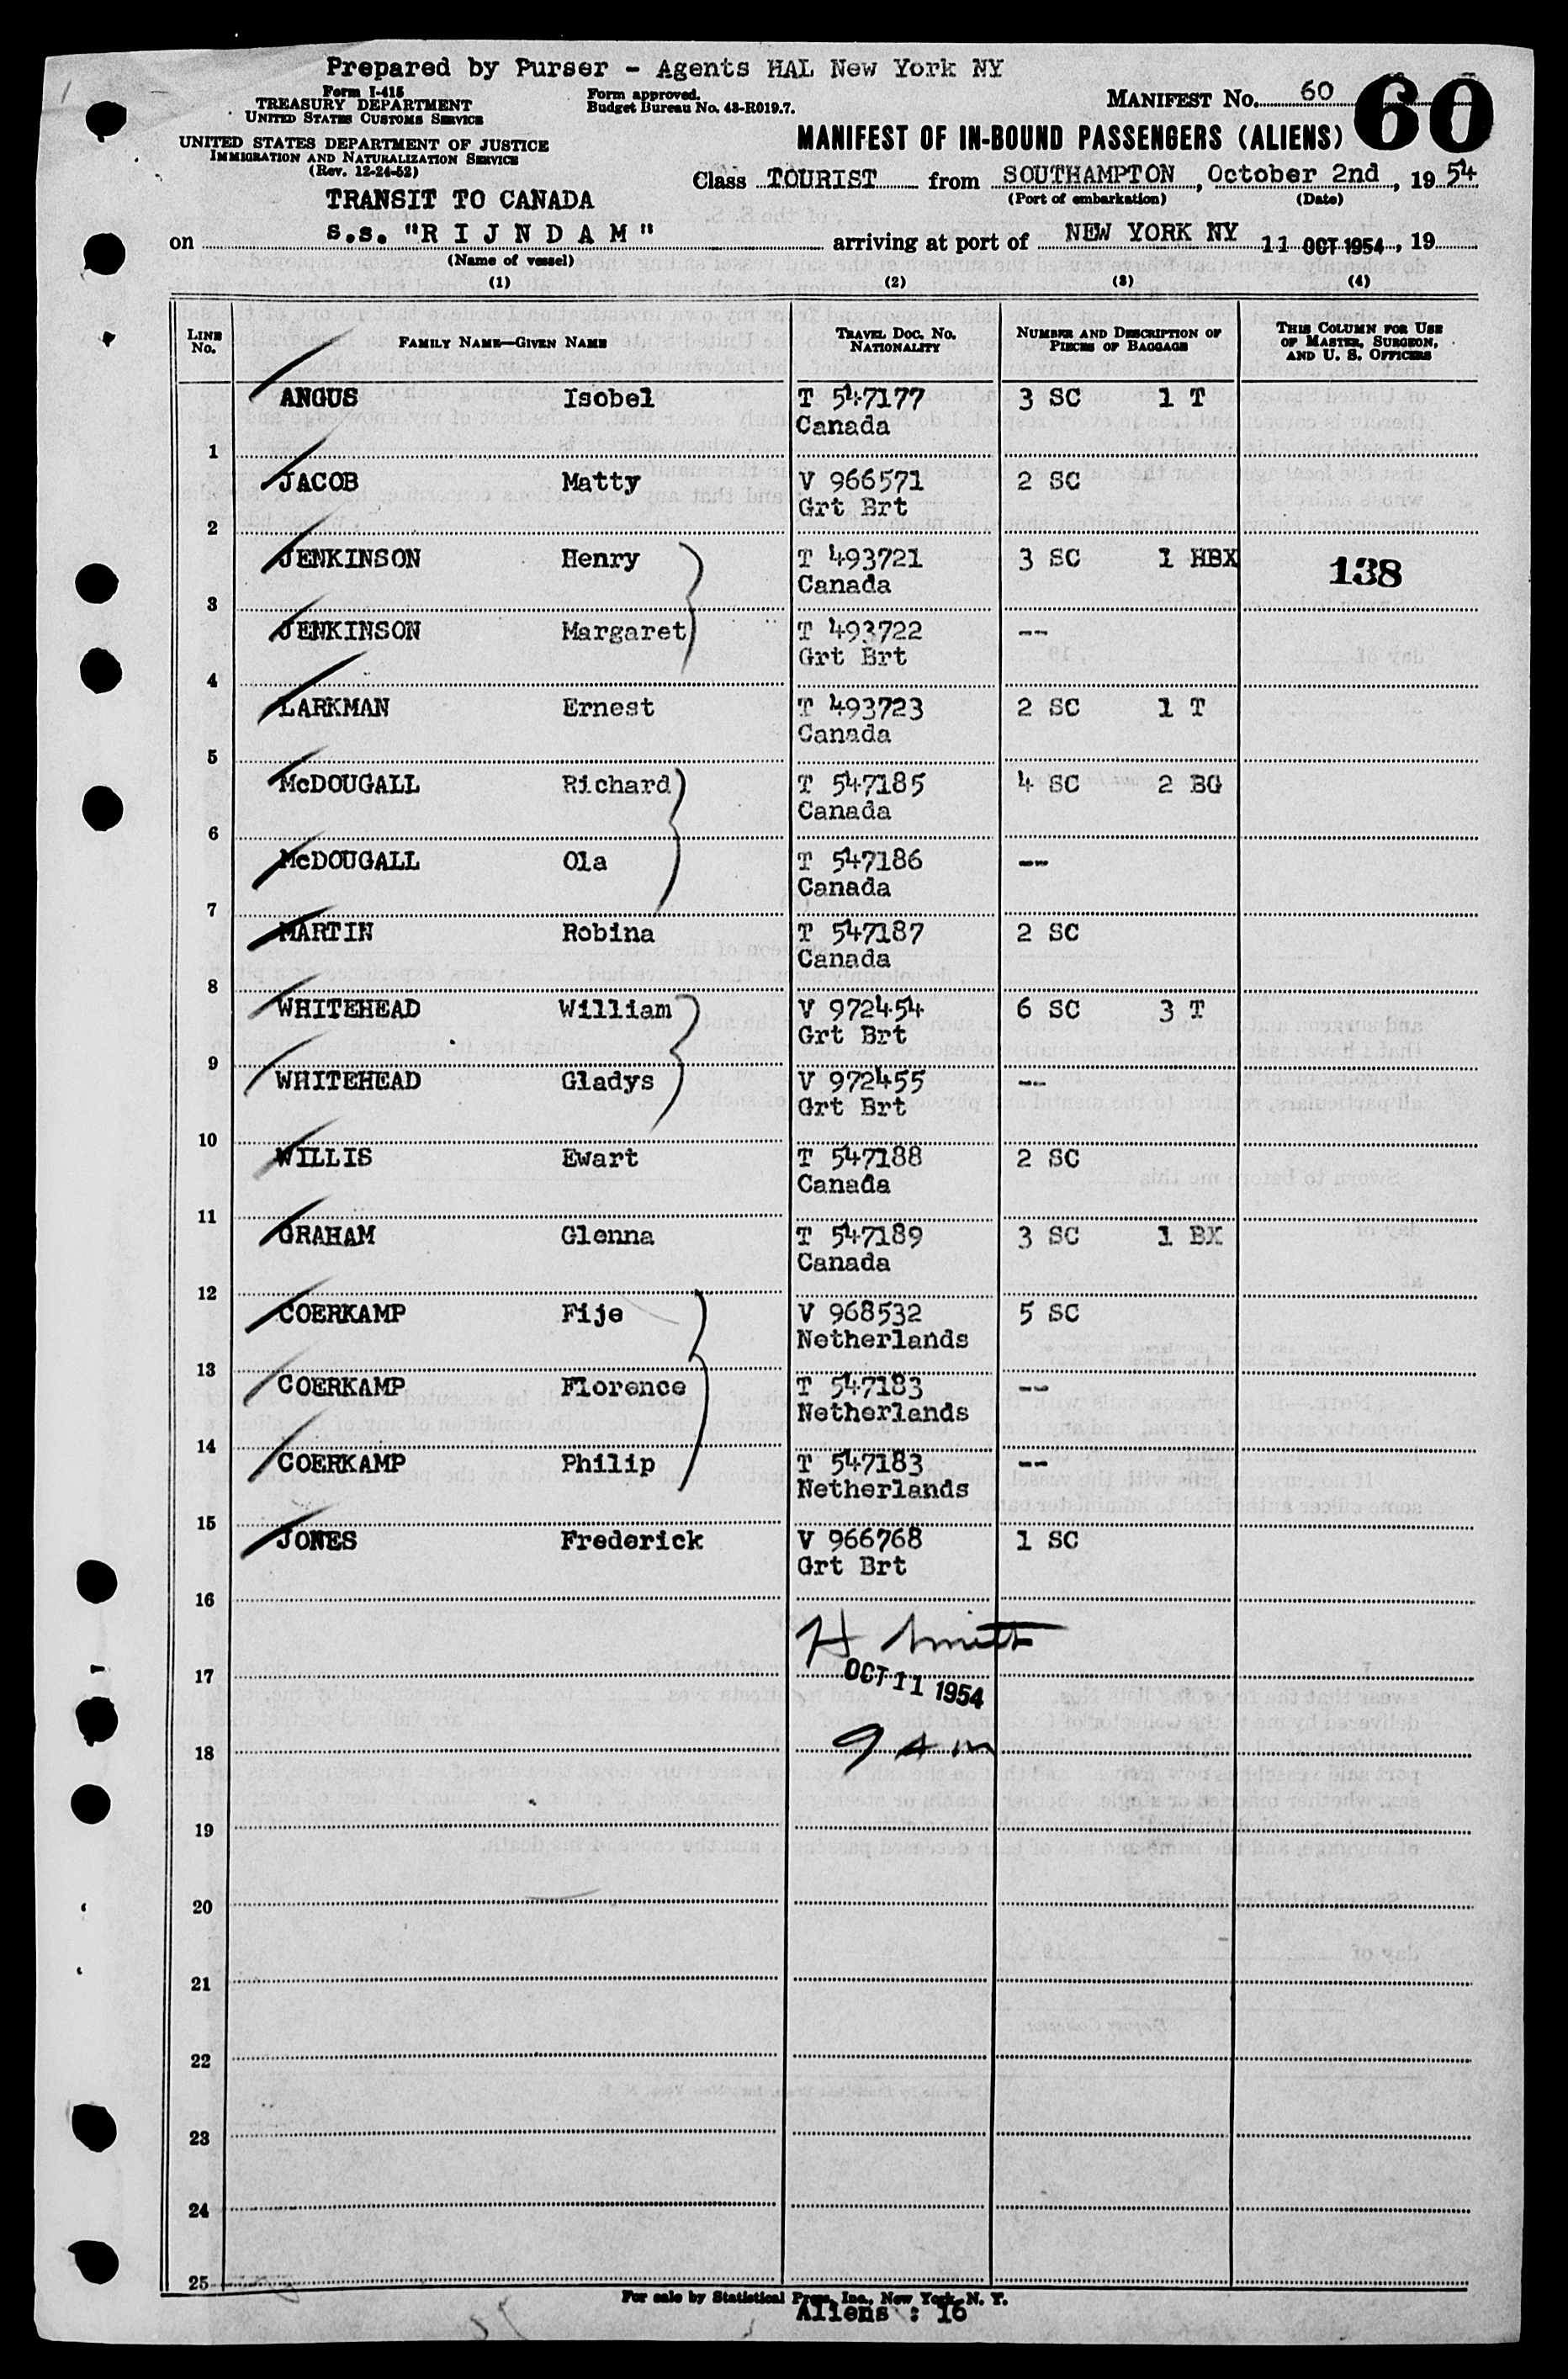 Prepared by Purser - Agents HAL New York NY
Form I-415
TREASURY DEPARTMENT
UNITED STATES CUSTOMS SERVICE
Form approved.
Budget Bureau No. 43-R019.7.
MANIFEST No. 60 60
UNITED STATES DEPARTMENT OF JUSTICE
IMMIGRATION AND NATURALIZATION SERVICE
(Rev. 12-24-52)
MANIFEST OF IN-BOUND PASSENGERS (ALIENS)
TRANSIT TO CANADA
Class TOURIST from SOUTHAMPTON, October 2nd, 19 54
(Port of embarkation) (Date)
on s.s. "R I J N D A M" arriving at port of NEW YORK NY 11 OCT 1954, 19
(Name of vessel)
(1) (2) (3) (4)
LINE No. FAMILY NAME—GIVEN NAME TRAVEL DOC. NO. NATIONALITY NUMBER AND DESCRIPTION OF PIECES OF BAGGAGE THIS COLUMN FOR USE OF MASTER, SURGEON, AND U. S. OFFICERS
ANGUS Isobel T 547177 3 SC 1 T
Canada
1
JACOB Matty V 966571 2 SC
Grt Brt
2
JENKINSON Henry T 493721 3 SC 1 HBX 138
Canada
3
JENKINSON Margaret T 493722 --
Grt Brt
4
LARKMAN Ernest T 493723 2 SC 1 T
Canada
5
McDOUGALL Richard T 547185 4 SC 2 BG
Canada
6
McDOUGALL Ola T 547186 --
Canada
7
MARTIN Robina T 547187 2 SC
Canada
8
WHITEHEAD William V 972454 6 SC 3 T
Grt Brt
9
WHITEHEAD Gladys V 972455 --
Grt Brt
10
WILLIS Ewart T 547188 2 SC
Canada
11
GRAHAM Glenna T 547189 3 SC 1 BX
Canada
12
COERKAMP Fije V 968532 5 SC
Netherlands
13
COERKAMP Florence T 547183 --
Netherlands
14
COERKAMP Philip T 547183 --
Netherlands
15
JONES Frederick V 966768 1 SC
Grt Brt
16
H Smith
17
OCT 11 1954
18
9 am
19
20
21
22
23
24
25
For sale by Statistical Press, Inc., New York, N. Y.
Aliens : 16